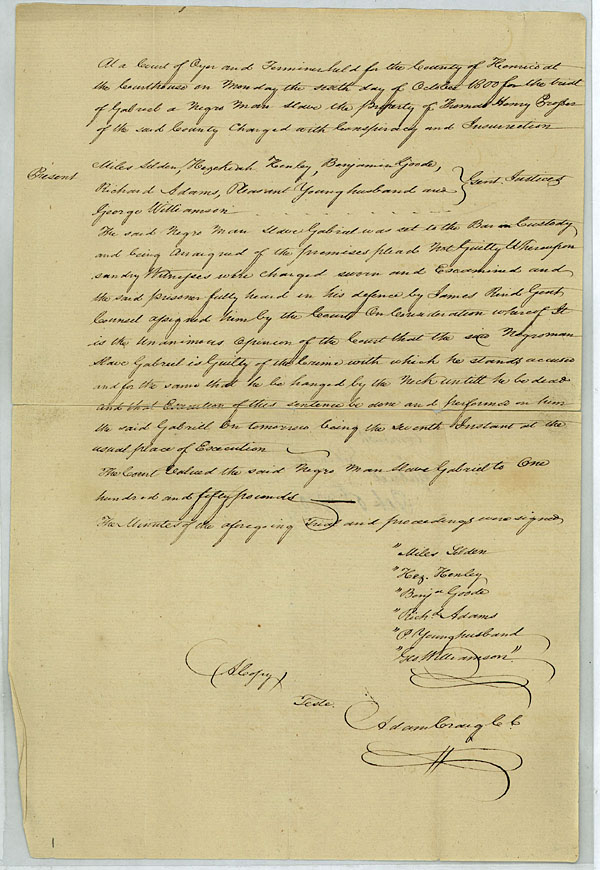 At a Court of Oyer and Terminer held for the County of Henrico at
the Courthouse on Monday the sixth day of October 1800 for the trial
of Gabriel a Negro Man Slave the property of Thomas Henry Prosser
of the said County Charged with Conspiracy and Insurrection
Present
Miles Selden, Hezekiah Henley, Benjamin Goode,
Richard Adams, Pleasant Younghusband and } Gent. Justices
George Williamson
The said Negro Man Slave Gabriel was set to the Bar in Custody
and being Arraigned of the premises plead Not Guilty Whereupon
sundry Witnesses were charged sworn and Examined and
the said prisoner fully heard in his defence by James Rind Gent.
Counsel assigned him by the Court On Consideration whereof It
is the Unanimous Opinion of the Court that the said Negro man
Slave Gabriel is Guilty of the Crime with which he stands accused
and for the same that he be hanged by the Neck untill he be dead
and that Execution of this sentence be done and performed on him
the said Gabriel On tomorrow being the Seventh Instant at the
usual place of Execution
The Court Valued the said Negro Man Slave Gabriel to One
hundred and fifty pounds
The Minutes of the aforegoing Trial and proceedings were signed
"Miles Selden
"Hez. Henley
"Benja Goode
"Richd Adams
"P. Younghusband
"Geo Williamson"
A Copy
Teste.
Adam Craig C. C.